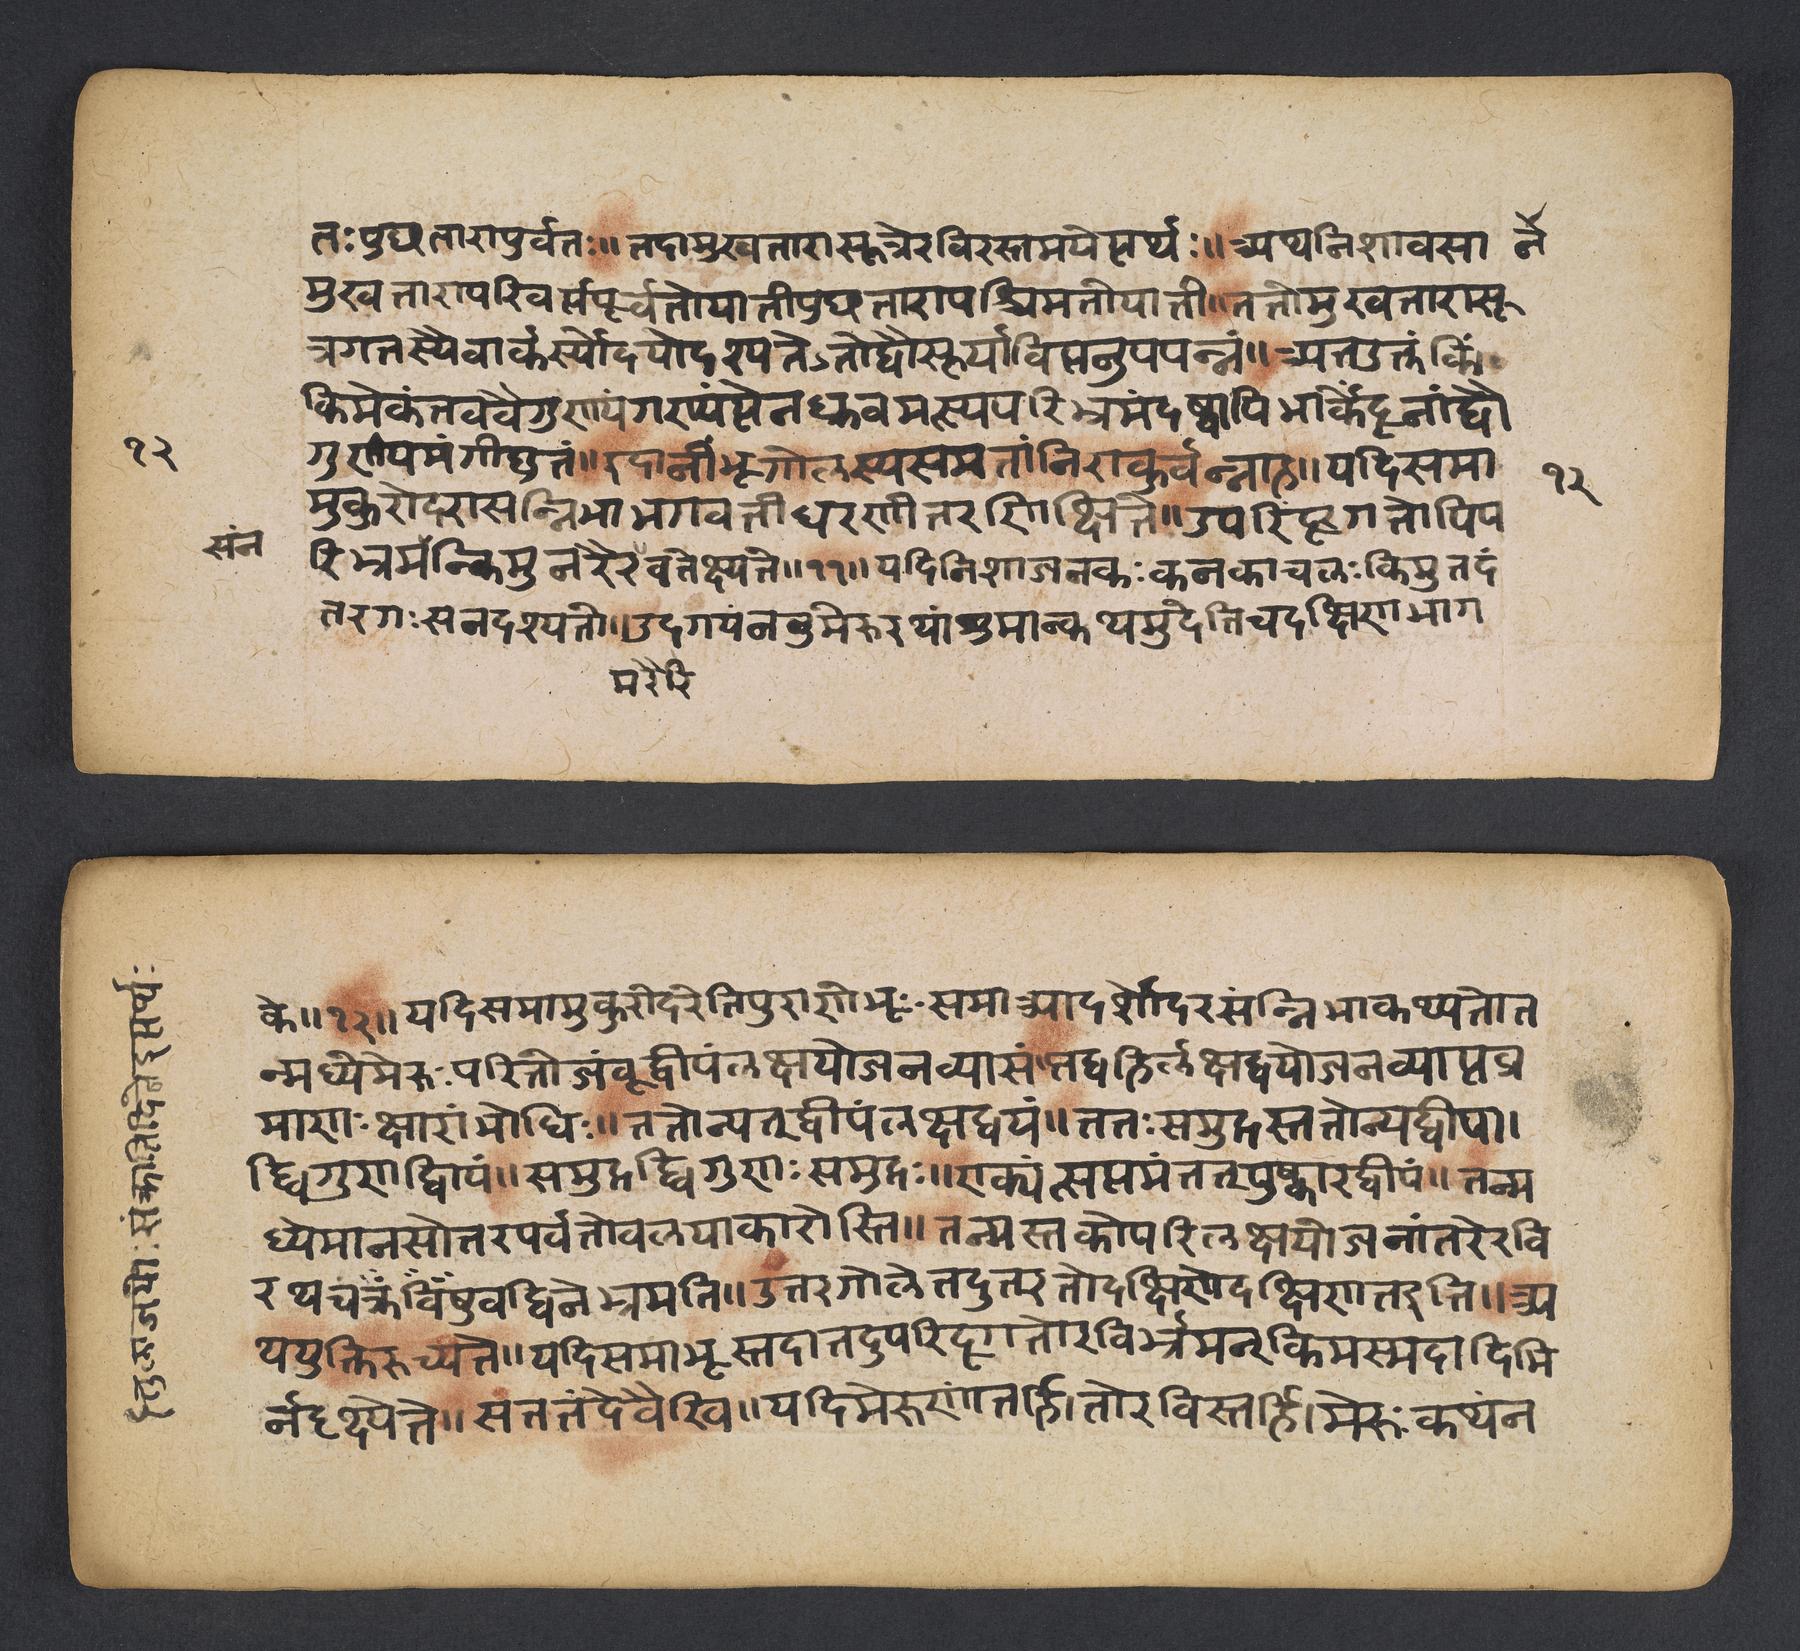 तःपुछतारापुर्वतः॥तदामुखतारासूत्रेरविरस्तमयेप्तर्थः॥अथनिशावसाने
मुखतारापरिवर्सपूर्वतोयातीपुछतारापश्चिमतोयाती॥ततोमुखतारासू
त्रगतस्यैवार्कस्योदयोदृश्यतेऽतोद्यौसूर्याविप्तनुपपन्नं॥अतउक्तं किं॰
किमेकंतववैगुण्यंगण्यंप्तेनध्रुवमस्यपरिभ्रमंदष्ट्वापिभार्केंदूनांद्यौ
गुण्यमंगीकृतं॥इदानींभूगोलस्यसमतांनिराकुर्वन्नाह॥यदिसमा
मुकुरोदरासन्निभाभगवतीधरणीतरणिःक्षिते॥उपरिदूरगतोपिप
रिभ्रमन्किमुनरैरवतेक्ष्यते॥११॥यदिनिशाजनकःकनकाचलःकिमुतदं
तरगःसनदृश्यती॥उदगयंननुमेरुरथांशुमान्कथमुदेतिचदक्षिणभाग
१२
१२
संन
मरैरि
के॥१२॥यदिसमामुकुरोदरेतिपुराणेभूःसमाआदर्शोदरसंन्निभाकथ्यतेत
न्मध्येमेरुःपरितोजंवूद्वीपंलक्षयोजनव्यासं॥तद्वहिर्लक्षद्वयोजनव्याप्तप्र
माणःक्षारांभोधिः॥ततोन्यत्द्वीपंलक्षद्वयं॥ततःसमुद्रस्ततोन्यद्वीपा।
द्विगुणद्विपं॥समुद्रद्विगुणःसमुद्रः॥एाक्यंत्सप्तमंतत्पुष्कारद्वीपं॥तन्म
ध्येमानसोत्तरपर्वतोवलयाकारोस्ति॥तन्मस्तकोपरिलक्षयोजनांतरेरवि
रथचक्रंविंषुवद्दिनेभ्रमति॥उत्तरगोलेतदुत्तरतोदक्षिणेदक्षिणतइति॥अ
थयुक्तिरुच्यते॥यदिसमाभूस्तदातदुपरिदूगतोरविर्भ्रमन्किमस्मदादिभि
र्नदृश्यते॥सततंदेवैरिव॥यदिमेरुणांतर्हितोरविस्तर्हिमेरुःकथंन